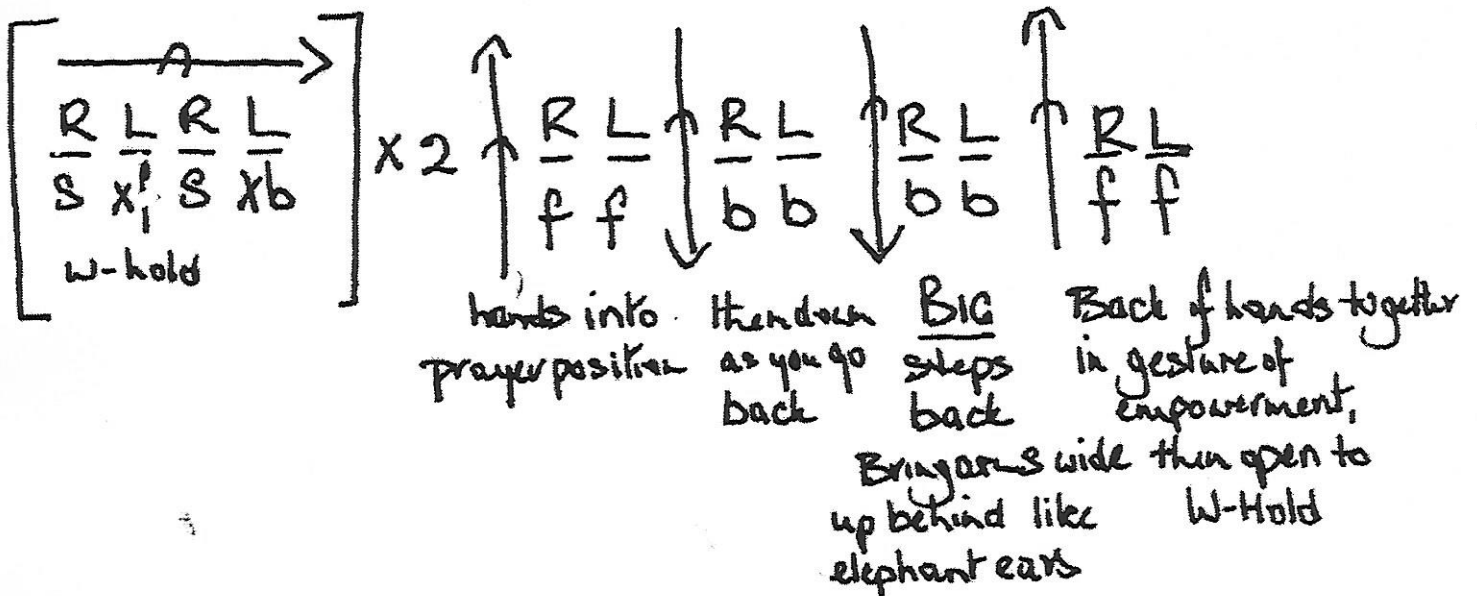 R L R L
S xf S xb
w-hold
x 2
R L
f f
R L
b b
R L
b b
R L
f f
hands into
prayer position
then down
as you go
back
BIG
steps
back
Bring arms wide
up behind like
elephant ears
Back of hands together
in gesture of
empowerment,
then open to
W-Hold